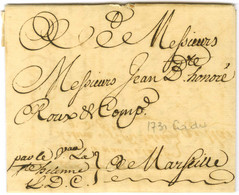 A Messieurs
Messieurs Jean Bte. honoré
Roux & Compe.
1731
par le
L.D.C.
à Marseille